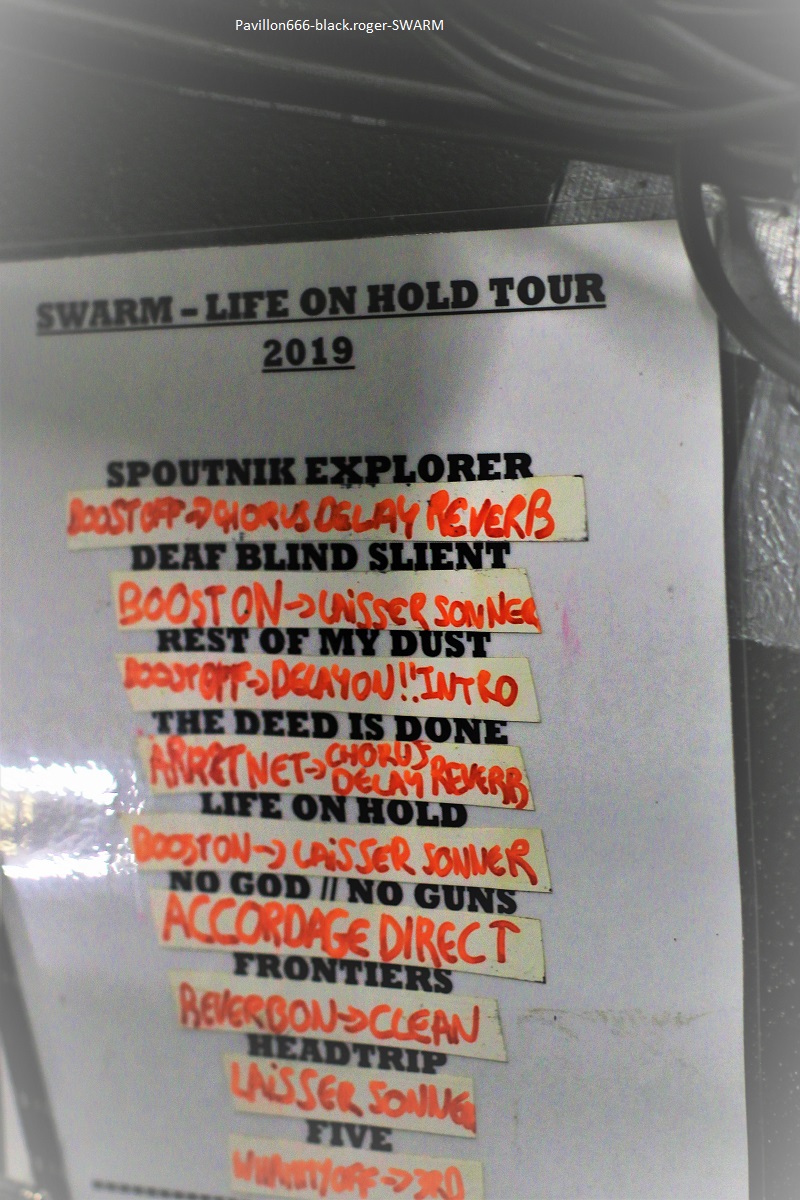 Pavillon666-black.roger-SWARM
SWARM – LIFE ON HOLD TOUR
2019
SPOUTNIK EXPLORER
BOOST OFF → CHORUS DELAY REVERB
DEAF BLIND SLIENT
BOOST ON → LAISSER SONNER
REST OF MY DUST
BOOST OFF → DELAY ON!! INTRO
THE DEED IS DONE
ARRET NET → CHORUS DELAY REVERB
LIFE ON HOLD
BOOST ON → LAISSER SONNER
NO GOD // NO GUNS
ACCORDAGE DIRECT
FRONTIERS
REVERB ON → CLEAN
HEADTRIP
LAISSER SONNER
FIVE
WHAMMY OFF → 3RD